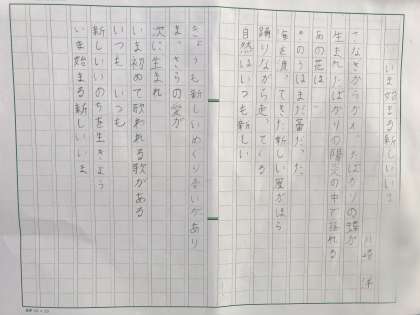 いま始まる新しいいま
川崎 洋
さなぎからかえったばかりの蝶が
生まれたばかりの陽炎の中で揺れる
あの花は
きのうはまだ蕾だった
海を渡ってきた新しい風がほら
踊りながら走っている
自然はいつも新しい
きょうも新しいめぐり合いがあり
まっさらの愛が
次々に生まれ
いま初めて歌われる歌がある
いつも いつも
新しいいのちを生きよう
いま始まる新しいいま